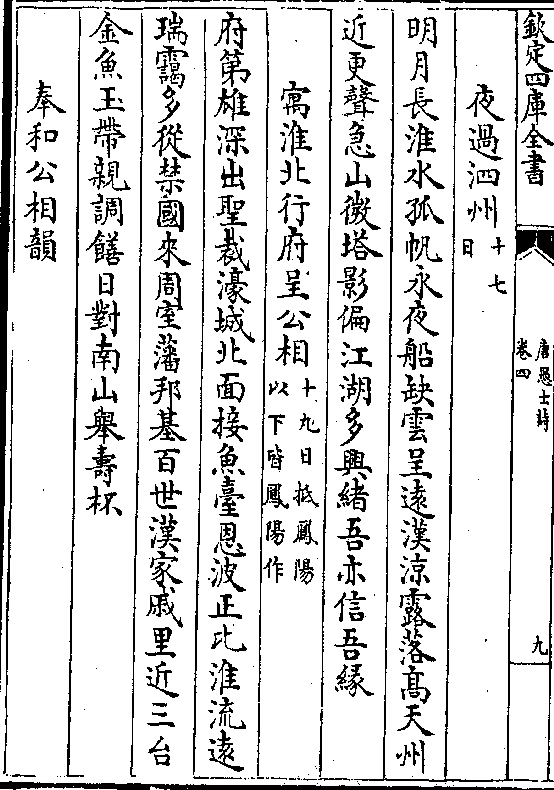 欽定四庫全書
唐愚士詩
卷四
九
夜過泗州十七日
明月長淮水孤帆永夜船缺雲呈遠漢涼露落高天州
近更聲急山微塔影偏江湖多興緒吾亦信吾緣
寓淮北行府呈公相十九日抵鳳陽以下皆鳳陽作
府第雄深出聖裁濠城北面接魚臺恩波正比淮流遠
瑞靄多從禁國來周室藩邦基百世漢家戚里近三台
金魚玉帶親調饍日對南山舉壽杯
奉和公相韻